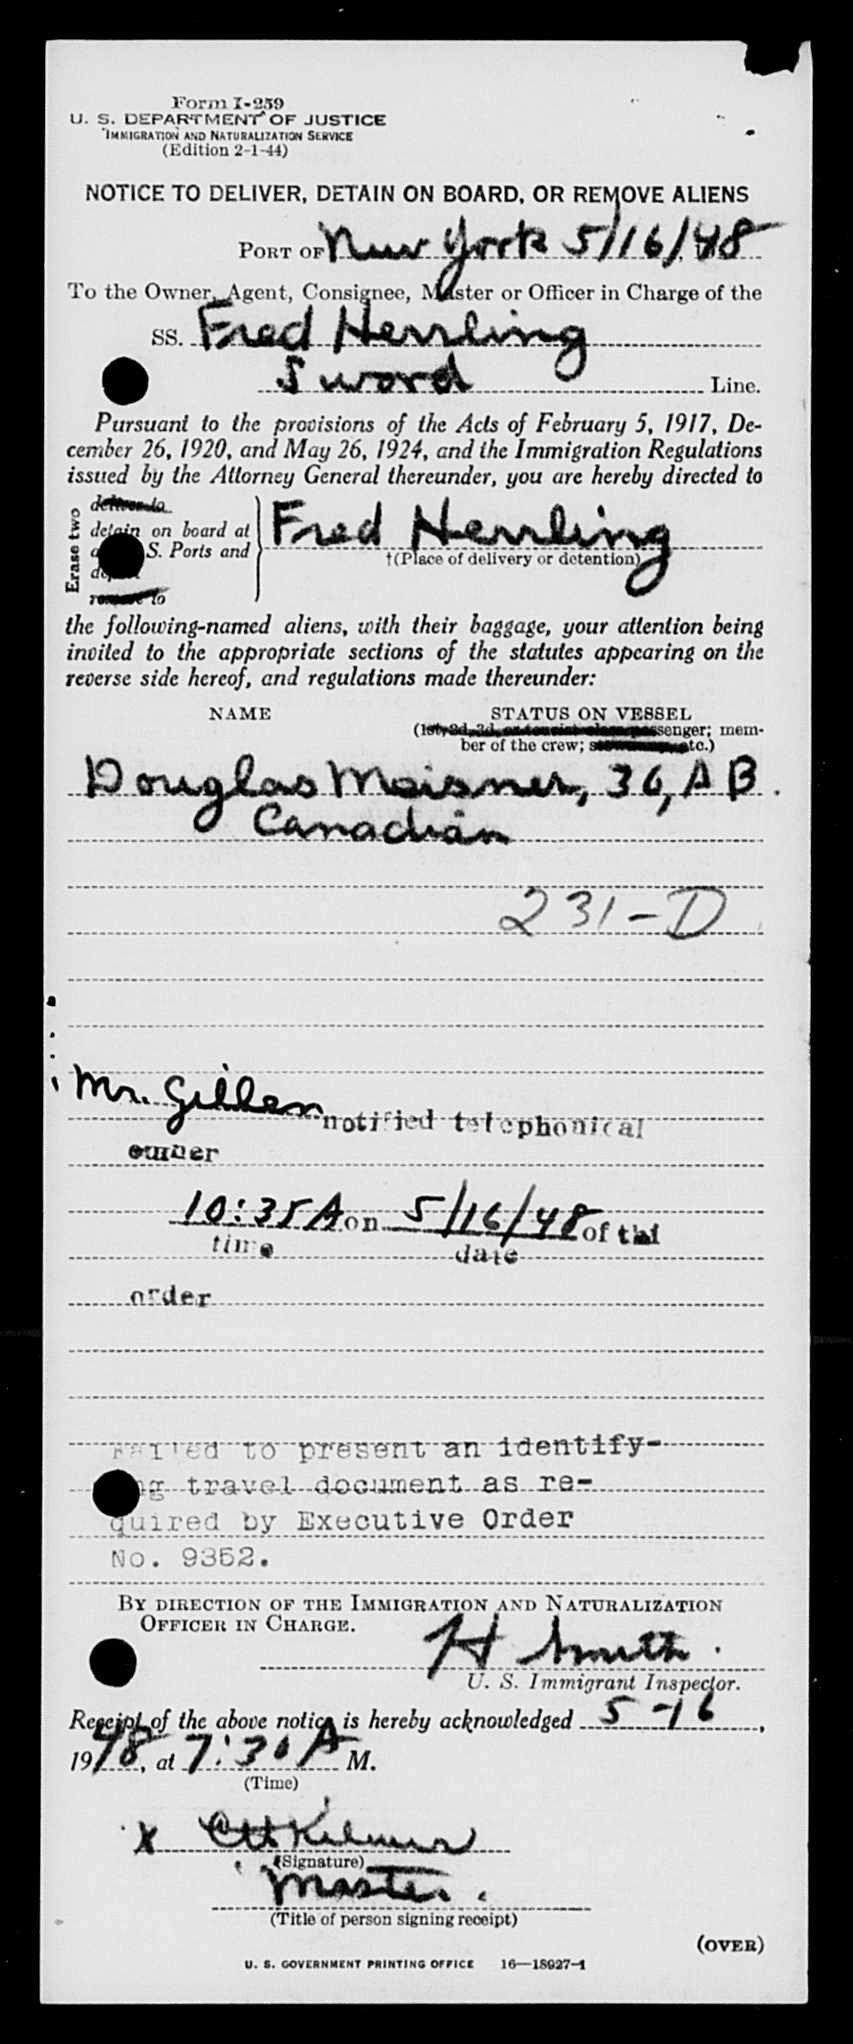 Form I-259
U. S. DEPARTMENT OF JUSTICE
IMMIGRATION AND NATURALIZATION SERVICE
(Edition 2-1-44)
NOTICE TO DELIVER, DETAIN ON BOARD, OR REMOVE ALIENS
PORT OF New York 5/16/48
To the Owner, Agent, Consignee, Master or Officer in Charge of the
SS. Fred Herrling
Sword Line.
Pursuant to the provisions of the Acts of February 5, 1917, De-
cember 26, 1920, and May 26, 1924, and the Immigration Regulations
issued by the Attorney General thereunder, you are hereby directed to
Erase two
deliver to
detain on board at
S. Ports and
remove to
Fred Herrling
†(Place of delivery or detention)
the following-named aliens, with their baggage, your attention being
invited to the appropriate sections of the statutes appearing on the
reverse side hereof, and regulations made thereunder:
NAME STATUS ON VESSEL
(1st, 2d, 3d, or tourist class passenger; mem-
ber of the crew; stowaway, etc.)
Douglas Meisner, 36, A B.
Canadian
231-D
Mr. Gillen notified telephonical
owner
10:35 A on 5/16/48 of thi
time date
order
Failed to present an identify-
ng travel document as re-
quired by Executive Order
No. 9352.
BY DIRECTION OF THE IMMIGRATION AND NATURALIZATION
OFFICER IN CHARGE.
H Smith.
U. S. Immigrant Inspector.
Receipt of the above notice is hereby acknowledged 5-16,
1948, at 7:30 A M.
(Time)
x
(Signature)
Master.
(Title of person signing receipt)
(OVER)
U. S. GOVERNMENT PRINTING OFFICE 16—18927-1